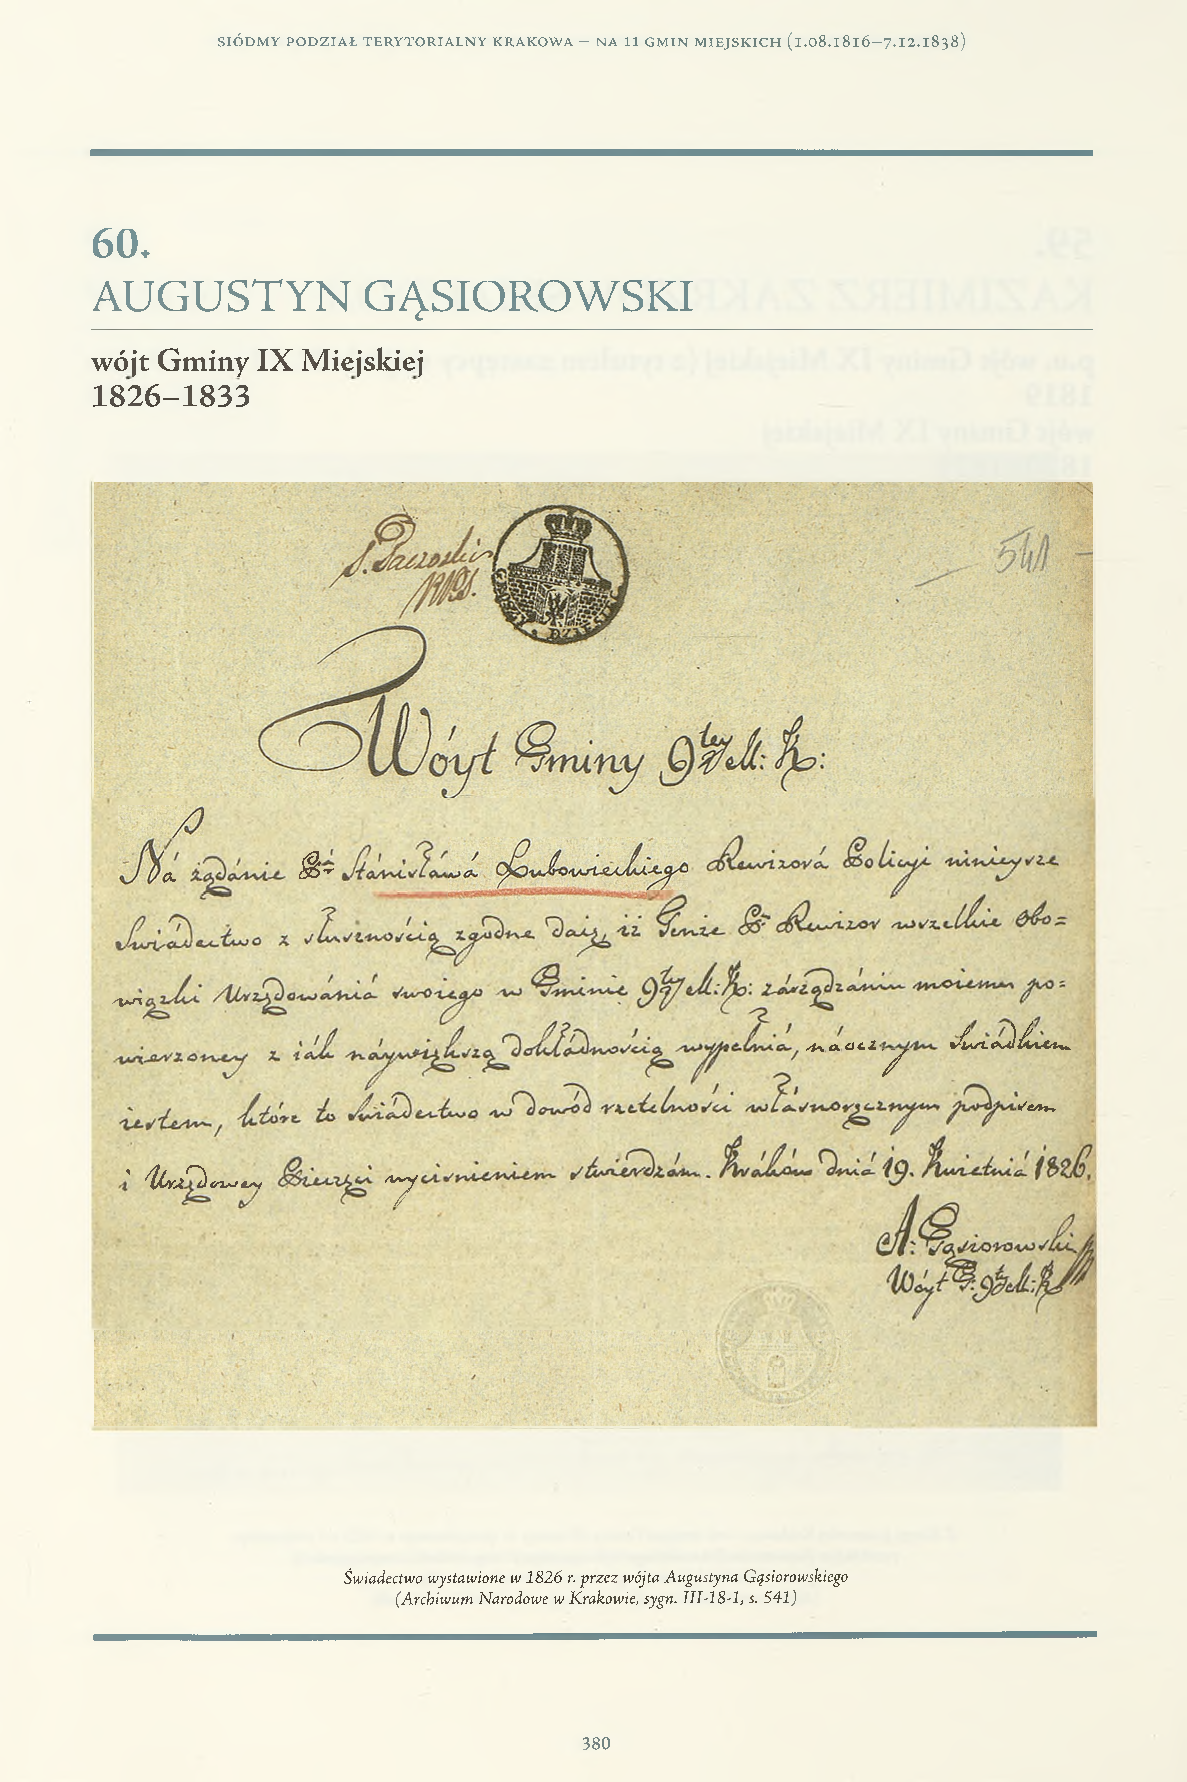 SIÓDMY PODZIAŁ TERYTORIALNY KRAKOWA – NA 11 GMIN MIEJSKICH (1.08.1816–7.12.1838)
60.
AUGUSTYN GĄSIOROWSKI
wójt Gminy IX Miejskiej
1826–1833
541
Wóyt Gminy 9tey M: K:
Ná żądánie Pa Stánisłáwá Lubowieckiego Rewizorá Policyi ninieysze
Swiádectwo z słusznością zgodne daię, iż Tenże P. Rewizor wszelkie Obo=
wiązki Urzędowániá swoiego w Gminie 9tey M: K: zárządzániu moiemu po=
wierzoney z iák náywiększą dokłádnością wypełniá, náocznym Swiádkiem
iestem, które to swiádectwo w dowód rzetelności włásnoręcznym podpisem
i Urzędowey Pieczęci wycisnieniem stwierdzám. Kráków dniá 19. Kwietniá 1826.
A: Gąsiorowski
Wóyt G: 9tey M: K
Świadectwo wystawione w 1826 r. przez wójta Augustyna Gąsiorowskiego
(Archiwum Narodowe w Krakowie, sygn. III-18-1, s. 541)
380